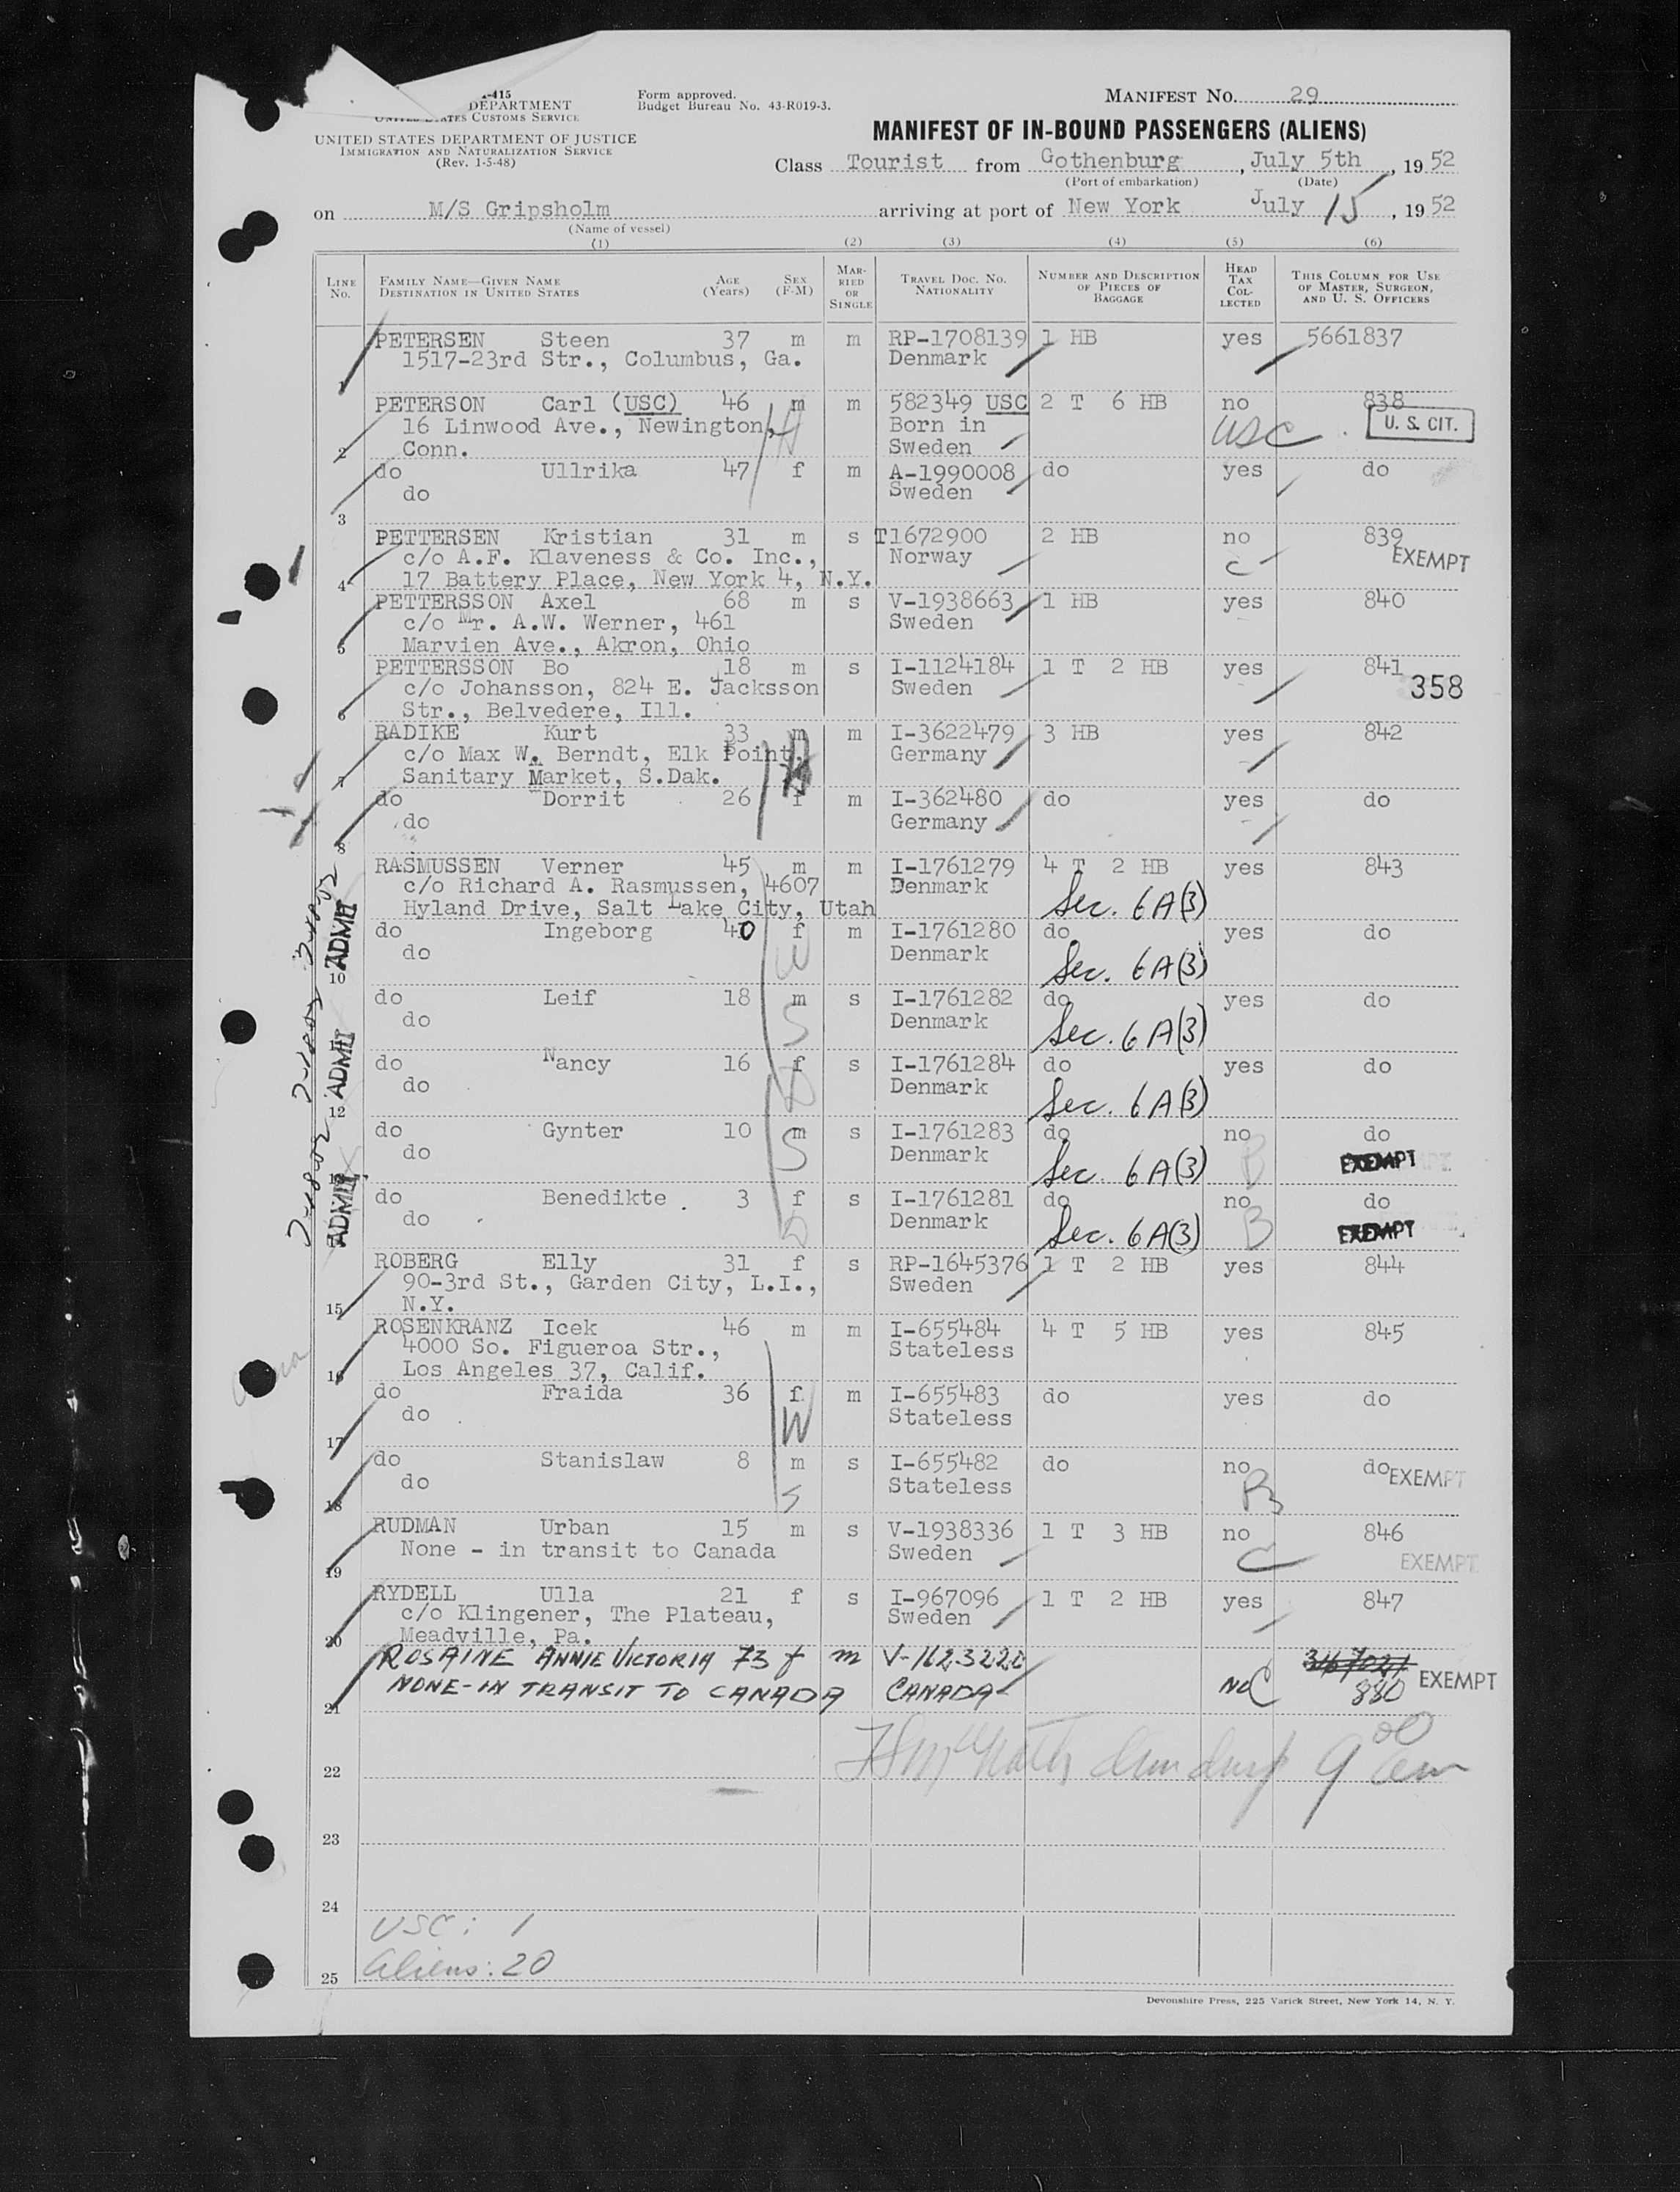 -415
Form approved.
Budget Bureau No. 43-R019-3.
MANIFEST NO. 29
DEPARTMENT
UNITED STATES CUSTOMS SERVICE
UNITED STATES DEPARTMENT OF JUSTICE
IMMIGRATION AND NATURALIZATION SERVICE
(Rev. 1-5-48)
MANIFEST OF IN-BOUND PASSENGERS (ALIENS)
Class Tourist from Gothenburg, July 5th, 1952
(Port of embarkation) (Date)
on M/S Gripsholm arriving at port of New York July 15, 1952
(Name of vessel)
(1) (2) (3) (4) (5) (6)
LINE No. FAMILY NAME—GIVEN NAME DESTINATION IN UNITED STATES AGE (Years) SEX (F-M) MARRIED OR SINGLE TRAVEL DOC. NO. NATIONALITY NUMBER AND DESCRIPTION OF PIECES OF BAGGAGE HEAD TAX COLLECTED THIS COLUMN FOR USE OF MASTER, SURGEON, AND U. S. OFFICERS
PETERSEN Steen 37 m m RP-1708139 1 HB yes 5661837
1517-23rd Str., Columbus, Ga. Denmark
1
PETERSON Carl (USC) 46 m m 582349 USC 2 T 6 HB no 838
16 Linwood Ave., Newington, Born in USC U. S. CIT.
2 Conn. Sweden
do Ullrika 47 f m A-1990008 do yes do
do Sweden
3
PETTERSEN Kristian 31 m s T1672900 2 HB no 839
c/o A.F. Klaveness & Co. Inc., Norway C EXEMPT
4 17 Battery Place, New York 4, N.Y.
PETTERSSON Axel 68 m s V-1938663 1 HB yes 840
c/o Mr. A.W. Werner, 461 Sweden
5 Marvien Ave., Akron, Ohio
PETTERSSON Bo 18 m s I-1124184 1 T 2 HB yes 841
c/o Johansson, 824 E. Jacksson Sweden 358
6 Str., Belvedere, Ill.
RADIKE Kurt 33 m m I-3622479 3 HB yes 842
c/o Max W. Berndt, Elk Point, Germany
7 Sanitary Market, S.Dak.
do Dorrit 26 f m I-362480 do yes do
do Germany
8
RASMUSSEN Verner 45 m m I-1761279 4 T 2 HB yes 843
c/o Richard A. Rasmussen, 4607 Denmark Sec. 6A(3)
Hyland Drive, Salt Lake City, Utah
ADMIT
do Ingeborg 40 f m I-1761280 do yes do
do Denmark Sec. 6A(3)
10 W
do Leif 18 m s I-1761282 do yes do
do Denmark Sec. 6A(3)
S
ADMIT
do Nancy 16 f s I-1761284 do yes do
do Denmark Sec. 6A(3)
12 D
do Gynter 10 m s I-1761283 do no do
do Denmark Sec. 6A(3) B EXEMPT
S
ADMIT
do Benedikte 3 f s I-1761281 do no do
do Denmark Sec. 6A(3) B EXEMPT
D
ROBERG Elly 31 f s RP-1645376 1 T 2 HB yes 844
90-3rd St., Garden City, L.I., Sweden
15 N.Y.
ROSENKRANZ Icek 46 m m I-655484 4 T 5 HB yes 845
4000 So. Figueroa Str., Stateless
16 Los Angeles 37, Calif.
do Fraida 36 f m I-655483 do yes do
do W Stateless
17
do Stanislaw 8 m s I-655482 do no do EXEMPT
do Stateless B
18 S
RUDMAN Urban 15 m s V-1938336 1 T 3 HB no 846
None - in transit to Canada Sweden C EXEMPT
19
RYDELL Ulla 21 f s I-967096 1 T 2 HB yes 847
c/o Klingener, The Plateau, Sweden
20 Meadville, Pa.
ROSAINE ANNIE VICTORIA 73 f m V-1623220
NONE-IN TRANSIT TO CANADA CANADA NO C 880 EXEMPT
21
22
23
24
USC: 1
Aliens: 20
25
Devonshire Press, 225 Varick Street, New York 14, N. Y.